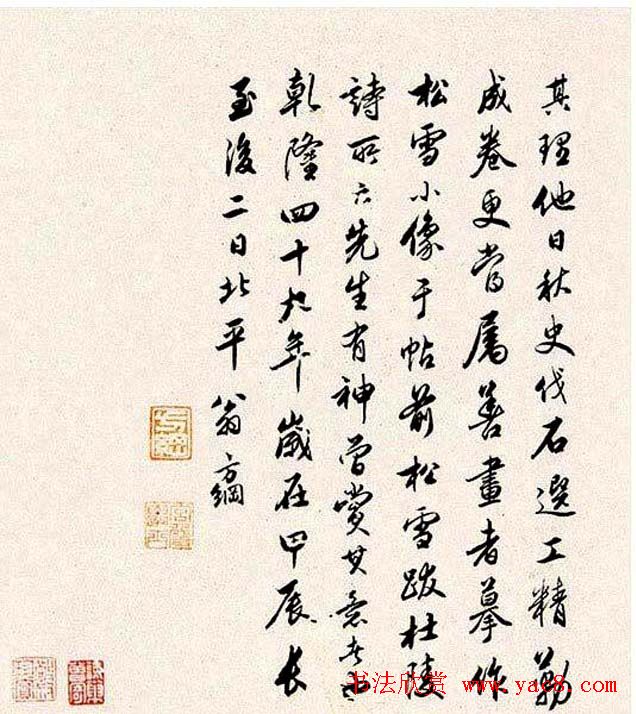 其理他日秋史伐石選工精勒
成卷更當属善畫者摹作
松雪小像于帖前松雪跋杜陵
詩所云先生有神當賞其意者
乾隆四十九年歲在甲辰長
至後二日北平翁方綱
书法欣赏 www.yac8.com